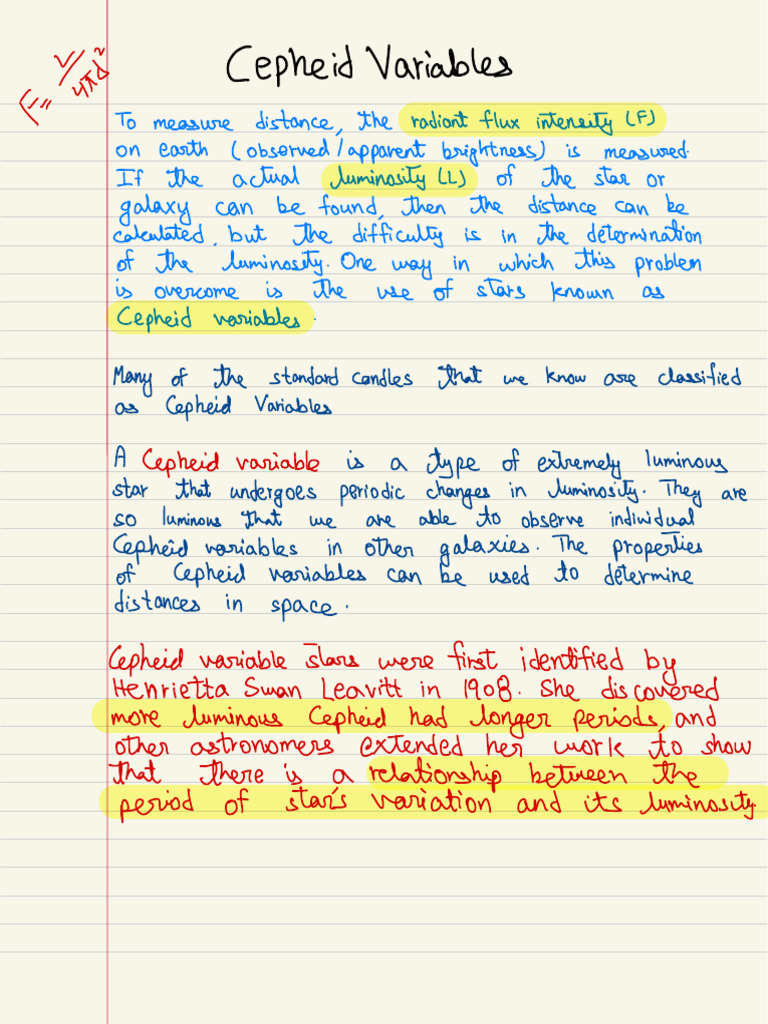 Cepheid Variables
F = L / 4πd²
To measure distance, the radiant flux intensity (F)
on earth (observed/apparent brightness) is measured.
If the actual luminosity (L) of the star or
galaxy can be found, then the distance can be
calculated, but the difficulty is in the determination
of the luminosity. One way in which this problem
is overcome is the use of stars known as
Cepheid variables.
Many of the standard candles that we know are classified
as Cepheid Variables
A Cepheid variable is a type of extremely luminous
star that undergoes periodic changes in luminosity. They are
so luminous that we are able to observe individual
Cepheid variables in other galaxies. The properties
of Cepheid variables can be used to determine
distances in space.
Cepheid variable stars were first identified by
Henrietta Swan Leavitt in 1908. She discovered
more luminous Cepheid had longer periods, and
other astronomers extended her work to show
that there is a relationship between the
period of star's variation and its luminosity.